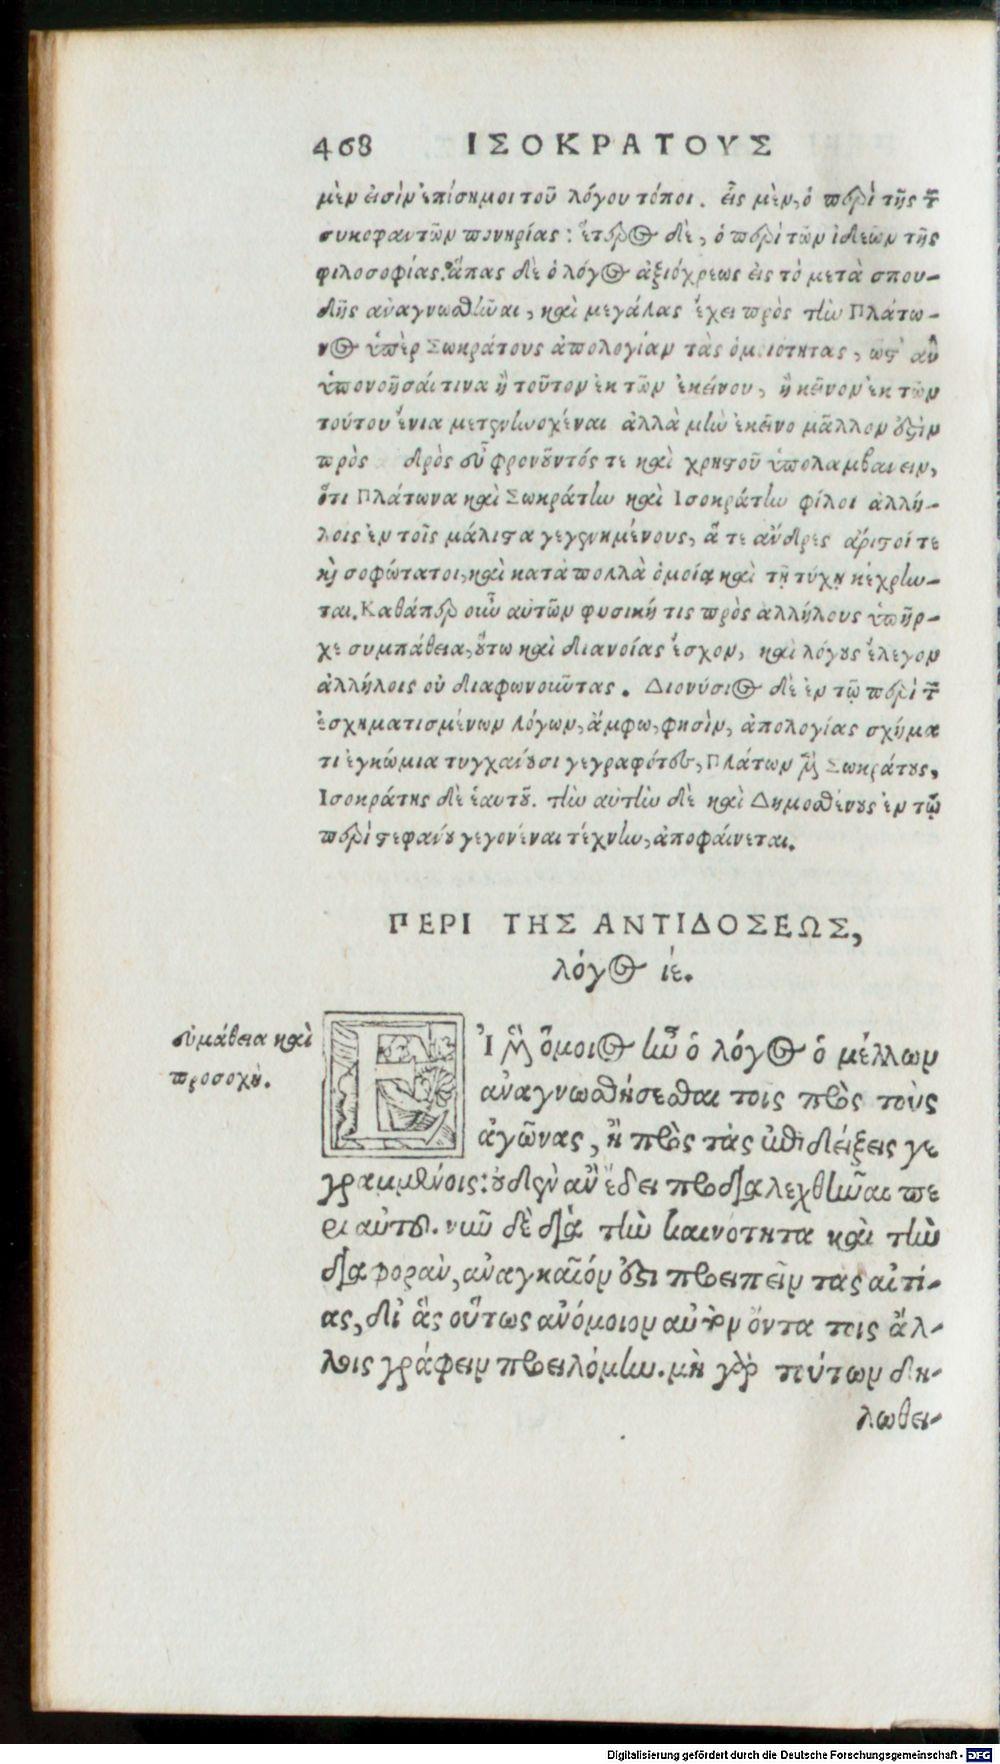 468 ΙΣΟΚΡΑΤΟΥΣ
μὲν εἰσὶν ἐπίσημοι τοῦ λόγου τόποι. εἷς μὲν, ὁ περὶ τῆς τῶν
συκοφαντῶν πονηρίας: ἕτερος δὲ, ὁ περὶ τῶν ἰδεῶν τῆς
φιλοσοφίας. ἅπας δὲ ὁ λόγος ἀξιόχρεως εἰς τὸ μετὰ σπου-
δῆς ἀναγνωσθῆναι, καὶ μεγάλας ἔχει πρὸς τὴν Πλάτω-
νος ὑπὲρ Σωκράτους ἀπολογίαν τὰς ὁμοιότητας, ὥστ' ἂν
ὑπονοῆσαί τινα ἢ τοῦτον ἐκ τῶν ἐκείνου, ἢ κεῖνον ἐκ τῶν
τούτου ἔνια μετενηνοχέναι ἀλλὰ μὴν ἐκεῖνο μᾶλλον ἐστὶν
πρὸς ἀνδρὸς εὖ φρονοῦντός τε καὶ χρηστοῦ ὑπολαμβάνειν,
ὅτι Πλάτωνα καὶ Σωκράτην καὶ Ἰσοκράτην φίλοι ἀλλή-
λοις ἐν τοῖς μάλιστα γεγενημένους, ἅ τε ἄνδρες ἄριστοί τε
καὶ σοφώτατοι, καὶ κατὰ πολλὰ ὁμοίᾳ καὶ τῇ τύχῃ κέχρην-
ται. Καθάπερ οὖν αὐτῶν φυσική τις πρὸς ἀλλήλους ὑπῆρ-
χε συμπάθεια, οὕτω καὶ διανοίας ἔσχον, καὶ λόγους ἔλεγον
ἀλλήλοις οὐ διαφωνοῦντας. Διονύσιος δὲ ἐν τῷ περὶ τῶν
ἐσχηματισμένων λόγων, ἄμφω, φησὶν, ἀπολογίας σχήμα
τι ἐγκώμια τυγχάνουσι γεγραφότες, Πλάτων μὲν Σωκράτους,
Ἰσοκράτης δὲ ἑαυτοῦ. τὴν αὐτὴν δὲ καὶ Δημοσθένους ἐν τῷ
περὶ στεφάνου γεγονέναι τέχνην, ἀποφαίνεται.
ΠΕΡΙ ΤΗΣ ΑΝΤΙΔΟΣΕΩΣ,
λόγος ιε.
εὐμάθεια καὶ
προσοχή.
ΕἸ μὲν ὅμοιος ἦν ὁ λόγος ὁ μέλλων
ἀναγνωσθήσεσθαι τοῖς πρὸς τοὺς
ἀγῶνας, ἢ πρὸς τὰς ἐπιδείξεις γε
γραμμένοις: οὐδὲν ἂν ἔδει προδιαλεχθῆναι πε
ρὶ αὐτοῦ. νῦν δὲ διὰ τὴν καινότητα καὶ τὴν
διαφορὰν, ἀναγκαῖόν ἐστι προειπεῖν τὰς αἰτί-
ας, δι' ἃς οὕτως ἀνόμοιον αὐτὸν ὄντα τοῖς ἄλ-
λοις γράφειν προειλόμην. μὴ γὰρ τούτων δη-
λωθει-
Digitalisierung gefördert durch die Deutsche Forschungsgemeinschaft - DFG